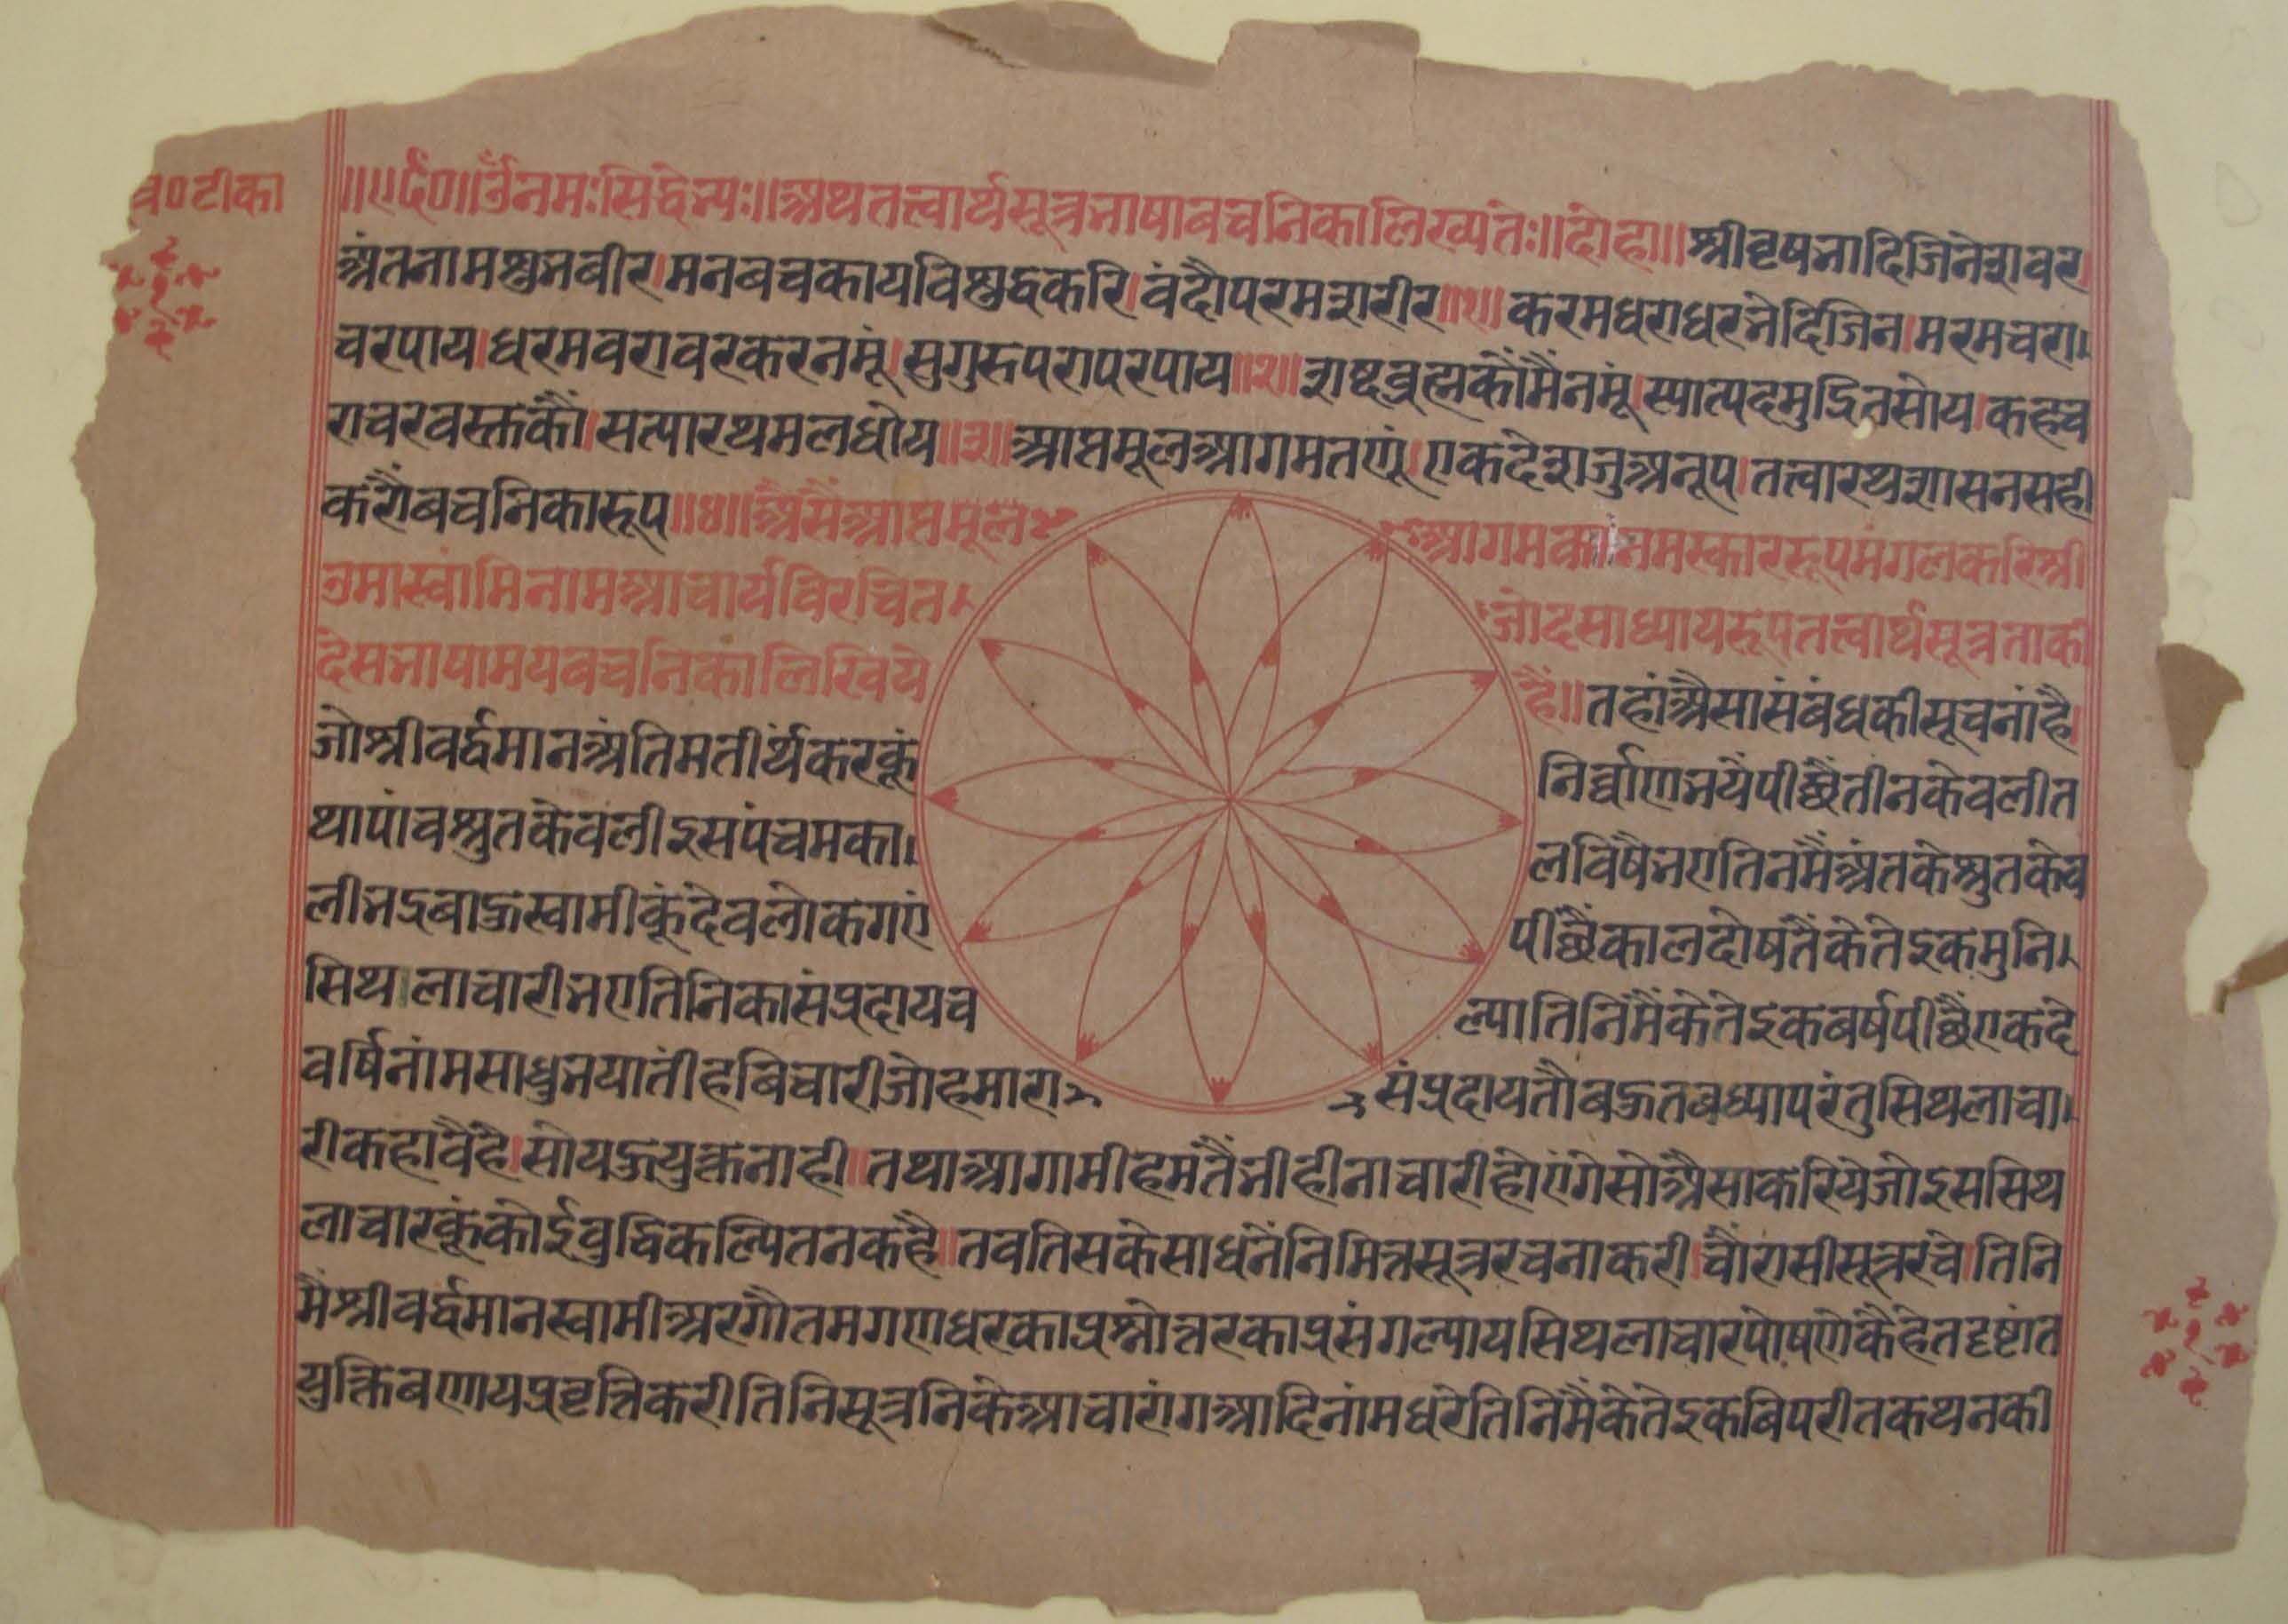 व०टीका
॥ए६०॥ॐनमःसिद्धेभ्यः॥अथतत्वार्थसूत्रभाषाबचनिकालिख्यतेः॥दोहा॥श्रीवृषभादिजिनेशवर।
अंतनामशुभबीर।मनबचकायविशुद्धकरि।वंदौपरमशरीर॥१॥करमधराधरभेदिजिन।मरमचरा।
चरपाय।धरमवरावरकरनमूं।सुगुरुपरापरपाय॥२॥शब्दब्रह्मकौंमैंनमूं।स्यात्पदमुद्रितसोय।कहवच
राचरवस्तकौं।सत्यारथमलधोय॥३॥आप्तमूलआगमतणूं।एकदेशजुअनूप।तत्वारथशासनसही
करौंबचनिकारूप॥४॥अैसैंआप्तमूल आगमकौंनमस्काररूपमंगलकरिश्री
उमास्वामिनामआचार्यविरचित जोदसाध्यायरूपतत्वार्थसूत्रताकी
देसभाषामयबचनिकालिखिये हैं॥तहांअैसासंबंधकीसूचनांहै।
जोश्रीवर्द्धमानअंतिमतीर्थंकरकूं निर्वाणभयैपीछैंतीनकेवलीत
थापांचश्रुतकेवलीइसपंचमका। लविषैभएतिनमैंअंतकेश्रुतकेव
लीभद्रबाहुस्वामीकूंदेवलोकगएं पीछैंकालदोषतैंकेतेइकमुनि।
सिथलाचारीभएतिनिकासंप्रदायच ल्यातिनिमैंकेतेइकबर्षपीछैंएकदे
वर्षिनांमसाधुभयातींहबिचारीजोहमारा संप्रदायतौबहुतबध्यापरंतुसिथलाचा।
रीकहावैहै।सोयहुयुक्तनाही॥तथाआगामीहमतैंभीहीनाचारीहोएंगेसोअैसाकरियेजोइससिथ
लाचारकूंकोईबुद्धिकल्पितनकहै॥तवतिसकेसाधनैंनिमित्तसूत्ररचनाकरी।चौरासीसूत्ररचे।तिनि
मैंश्रीवर्द्धमानस्वामीअरगौतमगणधरकाप्रश्नोत्तरकाप्रसंगल्यायसिथलाचारपोषणेकैहेतदृष्टांत
युक्तिबणायप्रवृत्तिकरीतिनिसूत्रनिकेआचारांगआदिनांमधरेतिनिमैंकेतेइकबिपरीतकथनकी